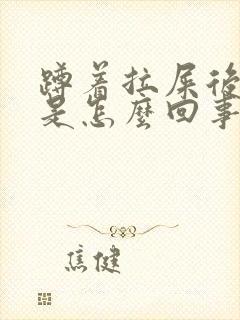 蹲着拉屎後
是怎麼回事
焦健